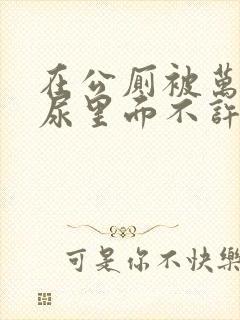 在公厕被萬
尿里而不許
可是你不快樂